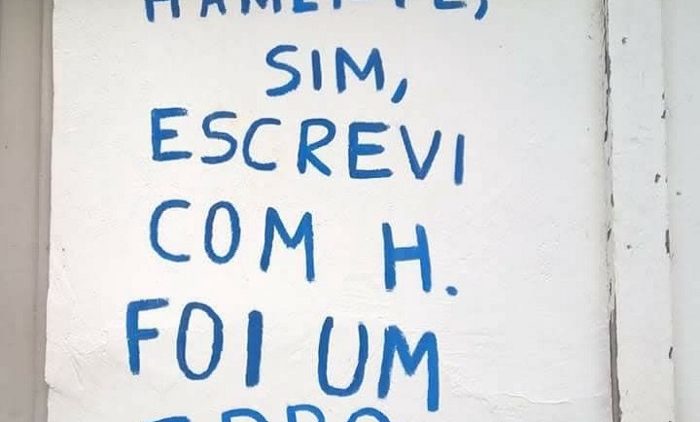 SIM,
ESCREVI
COM H.
FOI UM
ERRO